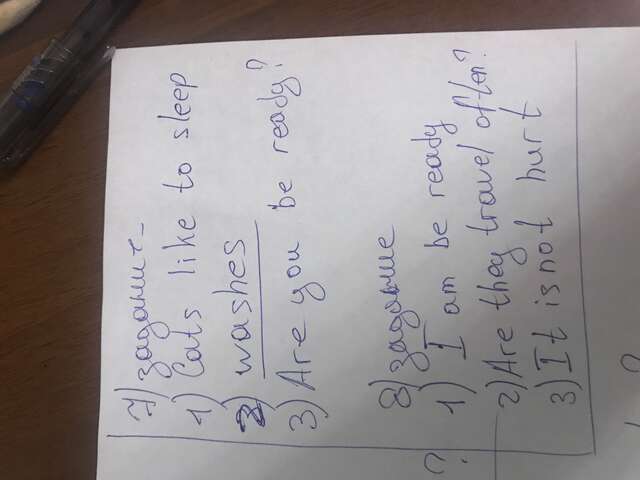 7) задание
1) Cats like to sleep
2) washes
3) Are you be ready?
8) задание
1) I am be ready
2) Are they travel often?
3) It is not hurt
?
?